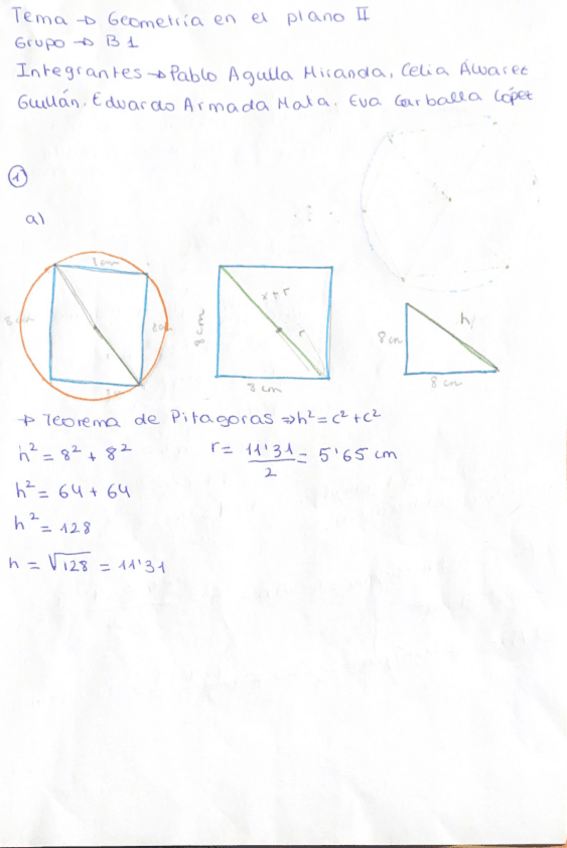 Tema → Geometría en el plano II
Grupo → B1
Integrantes → Pablo Agulla Miranda, Celia Álvarez
Guillán, Eduardo Armada Mata, Eva Carballa López
①
a)
8cm
8cm
8cm
8cm
8 cm
r+r
r
8 cm
8 cm
h
8 cm
→ Teorema de Pitagoras ⇒ h² = c² + c²
h² = 8² + 8²
r = 11'31/2 = 5'65 cm
h² = 64 + 64
h² = 128
h = √128 = 11'31